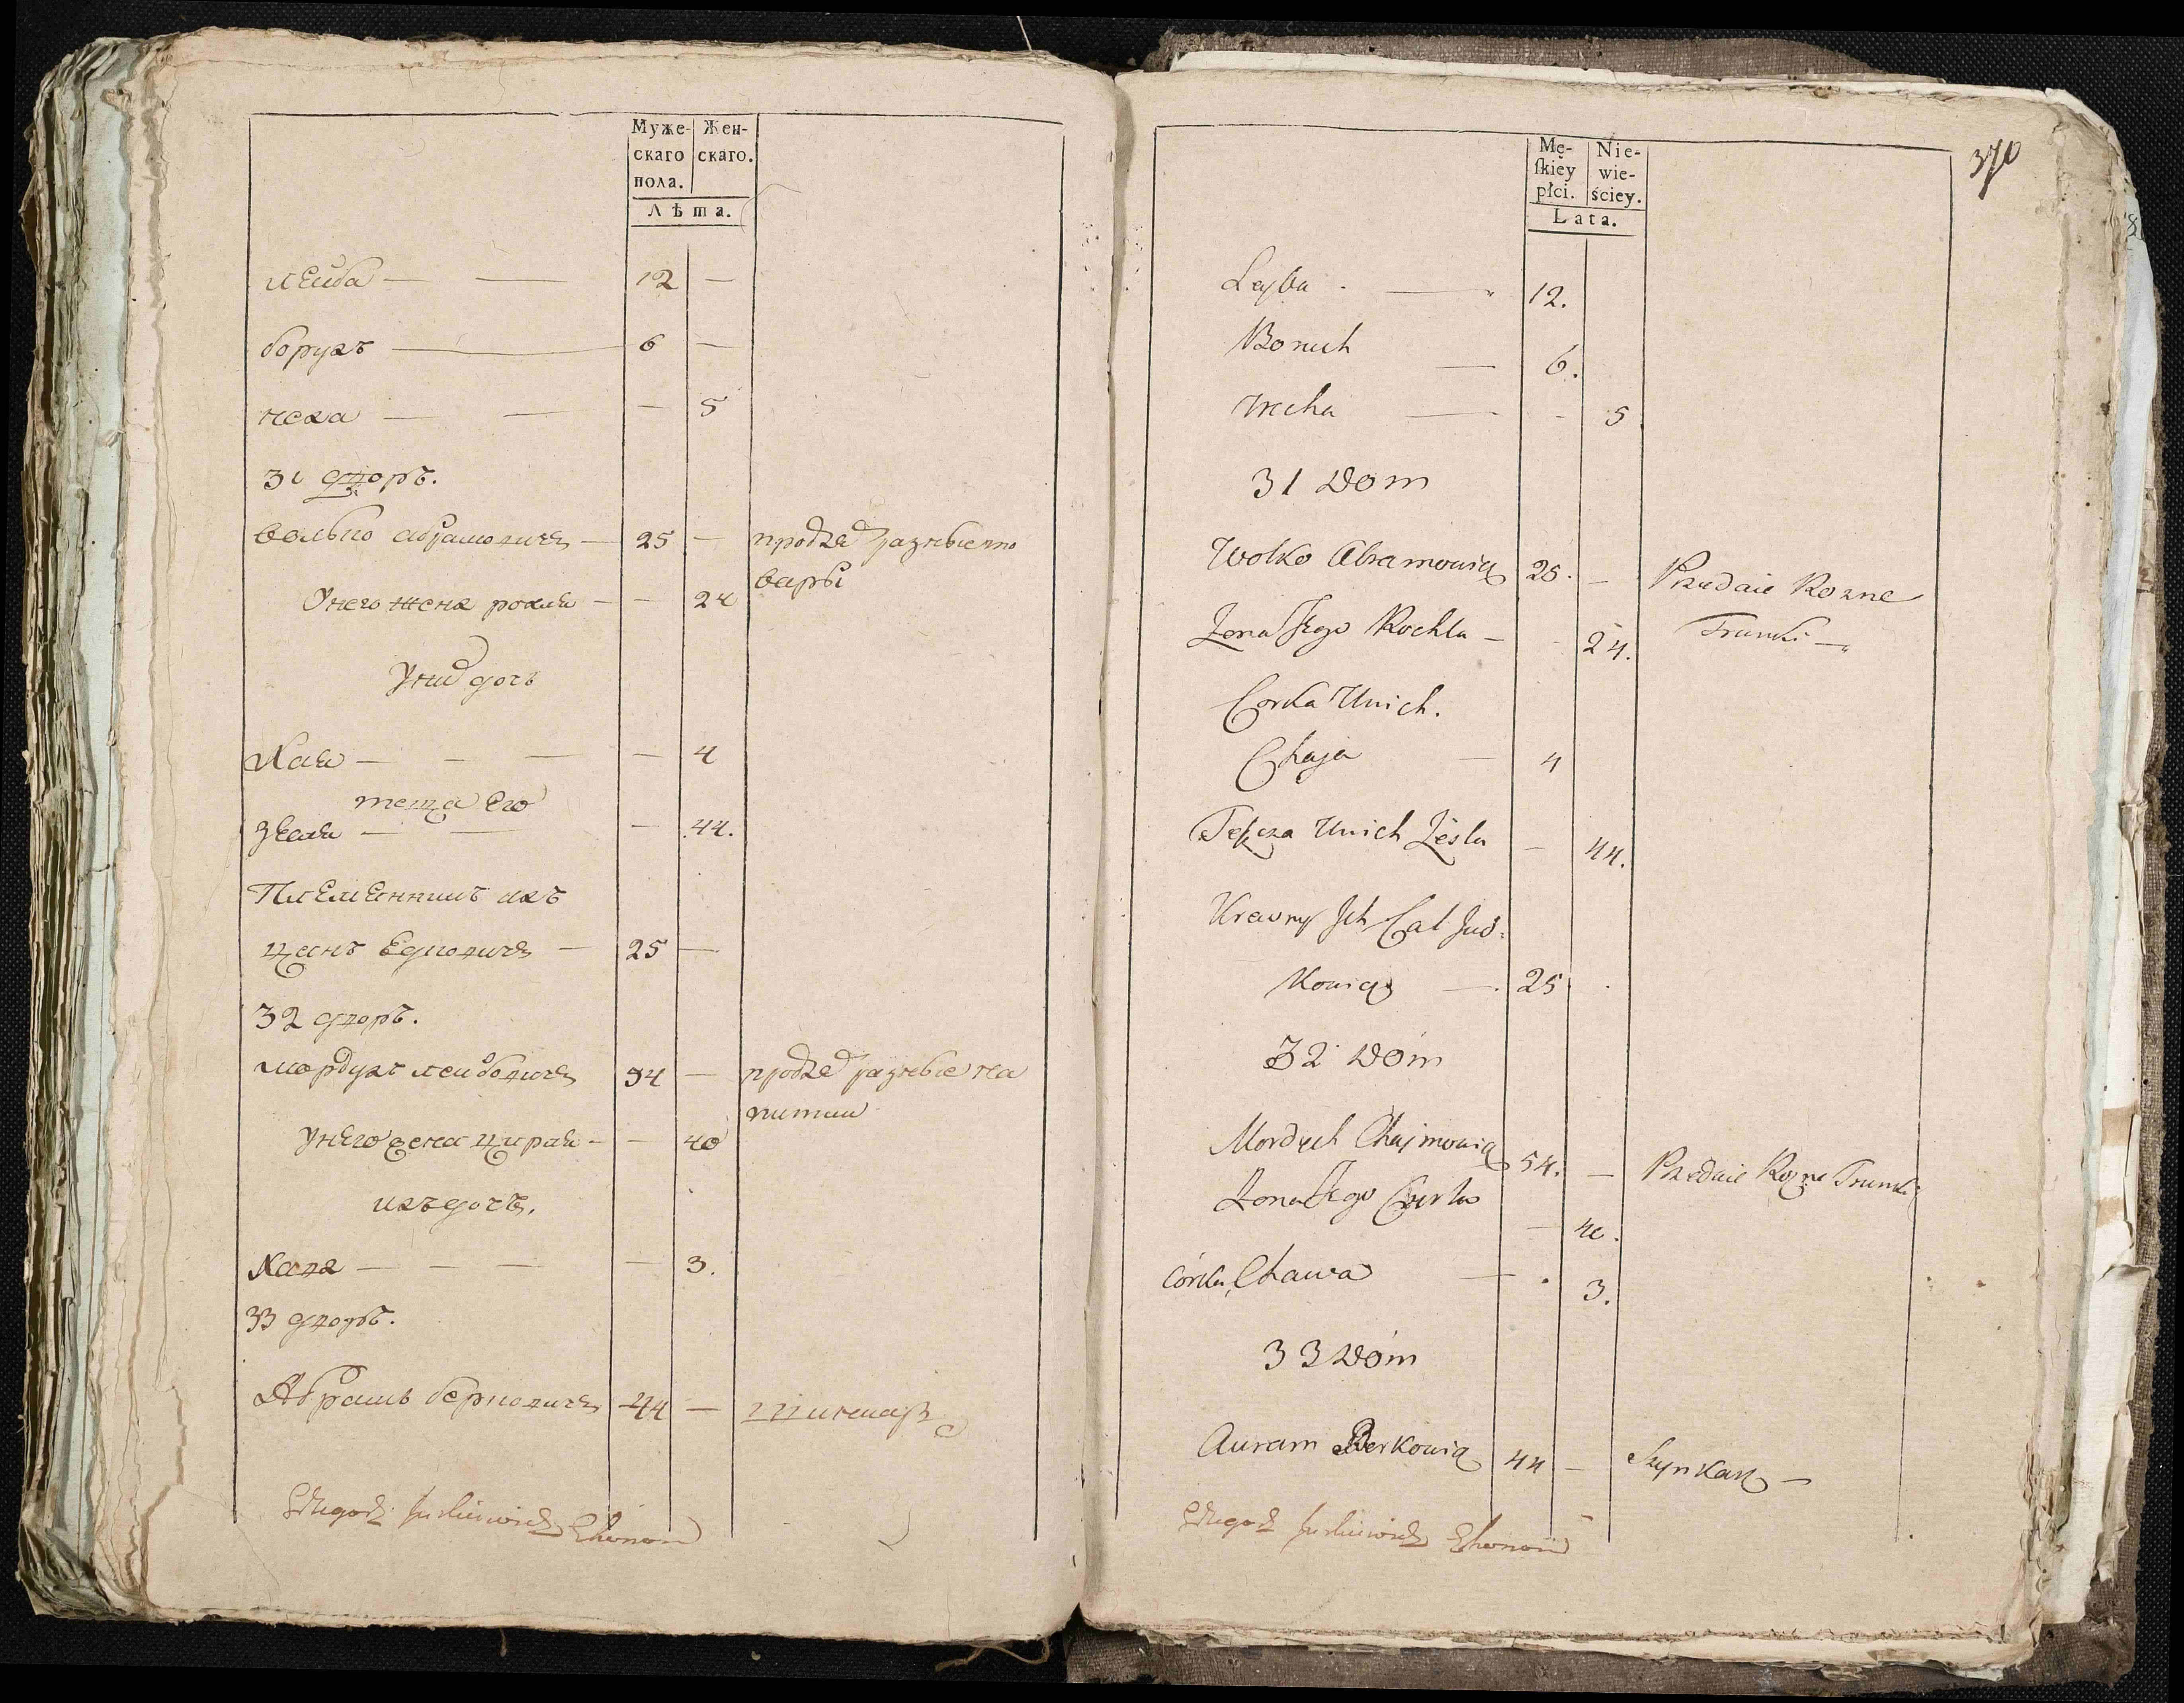 Муже- Жен-
скаго скаго.
пола.
Лѣта.
лейба — — 12 —
борухъ — 6 —
неха — — — 5
31 дворъ.
волько абрамовичъ — 25 — продае разные то
вары
Унего жена рохля — — 24
Уних дочь
Хая — — — — 4
теща Его
— — — 44.
Племенникъ ихъ
25 —
32 дворъ.
мордухъ лейбовичъ 54 — продае разные на
питки
Унего жена цирля — — 40
ихъ дочь.
Хава — — — — 3.
33 дворъ.
Абрамъ берковичъ 44 — шинкарь
370
Mę- Nie-
ſkiey wie-
płci. ściey.
Lata.
Leyba — 12.
Boruch — 6.
Necha — - 5
31 Dom
Wolko Abramowicz 25. — Przedaie Rozne
Żona Jego Rochla — - 24. Trunki —
Corka Unich.
Chaja — 4
Teścza Unich — 44.
Krewny Ich Cal Jud-
kowicz — 25
32 Dom
Morduch Chajmowicz 54. — Przedaie Rozne Trunki
Żona Jego Cyrla — 40.
Córka, Chawa — . 3.
33 Dóm
Auram Berkowicz 44 — Szynkarz —